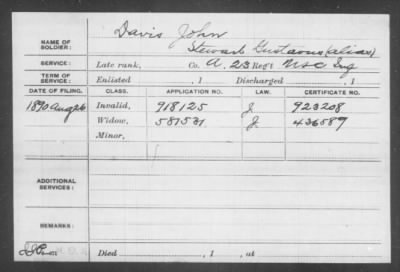 Davis John
NAME OF SOLDIER: Stewart Gustavus (alias)
SERVICE: Late rank, Co. A. 23 Reg't USC Inf
TERM OF SERVICE: Enlisted , 1 Discharged , 1
DATE OF FILING. CLASS. APPLICATION NO. LAW. CERTIFICATE NO.
1890 Aug 26 Invalid, 918125 J. 923208
Widow, 581531 J 436589
Minor,
ADDITIONAL SERVICES:
REMARKS:
Died , 1 , at